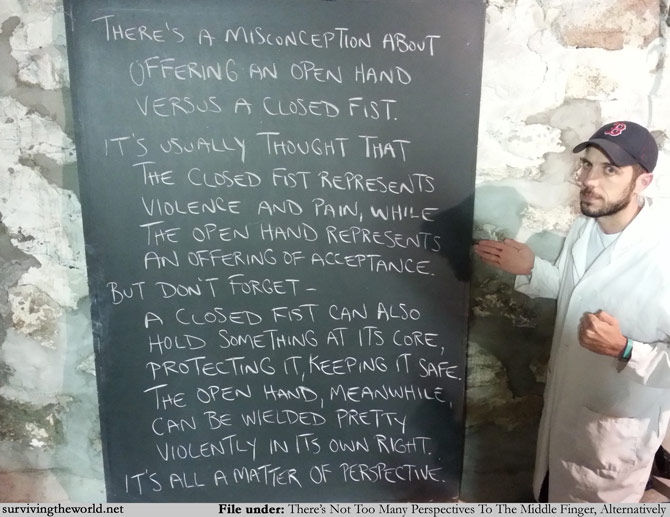 THERE'S A MISCONCEPTION ABOUT
OFFERING AN OPEN HAND
VERSUS A CLOSED FIST.
IT'S USUALLY THOUGHT THAT
THE CLOSED FIST REPRESENTS
VIOLENCE AND PAIN, WHILE
THE OPEN HAND REPRESENTS
AN OFFERING OF ACCEPTANCE.
BUT DON'T FORGET -
A CLOSED FIST CAN ALSO
HOLD SOMETHING AT ITS CORE,
PROTECTING IT, KEEPING IT SAFE.
THE OPEN HAND, MEANWHILE,
CAN BE WIELDED PRETTY
VIOLENTLY IN ITS OWN RIGHT.
IT'S ALL A MATTER OF PERSPECTIVE.
B
survivingtheworld.net
File under: There's Not Too Many Perspectives To The Middle Finger, Alternatively